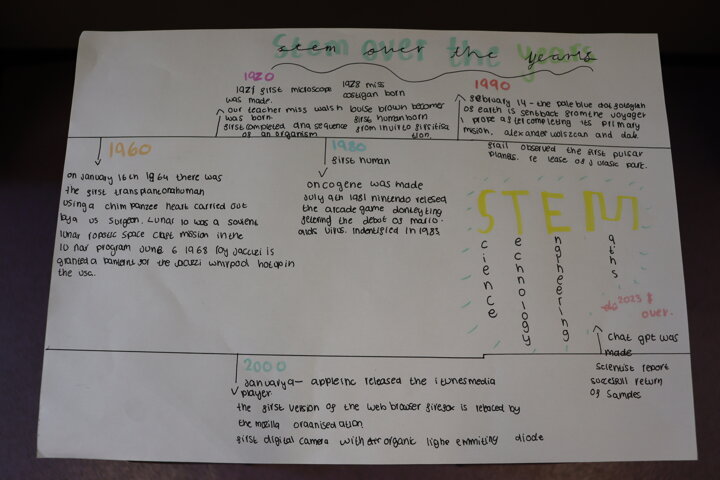 stem over the years
1920
1921 first microscope
was made.
our teacher miss walsh
was born.
first completed dna sequence
of an organism
1978 miss
costigan born
louise brown becomes
first human born
from invitro firsitisa
tion.
1990
february 14 - the pale blue dot
of earth is sent back from the voyager
1 probe after completing its primary
mission. alexander wolszcan and dale
frail observed the first pulsar
planets. re lease of jurasic park.
1960
on january 16th 1964 there was
the first transplant on a human
using a chimpanzee heart carried out
by a us surgeon. Lunar 10 was a soveint
lunar robotic space craft mission in the
lunar program June 6 1968 roy jacuzi is
granted a pantent for the jacuzi whirpool hotup in
the usa.
1980
first human
oncogene was made
July 9th 1981 nintendo relesed
the arcade game donkeyking
fetering the debut of mario.
aids virus. indentified in 1983
STEM
science
technology
engineering
maths
2023 &
over.
chat gpt was
made
scientist report
sucesfull return
of samples
2000
January 9 - apple inc released the itunes media
player
the first version of the web browser firefox is relaced by
the mozilla organisedation.
first digital camera with organic lighe emmiting diode